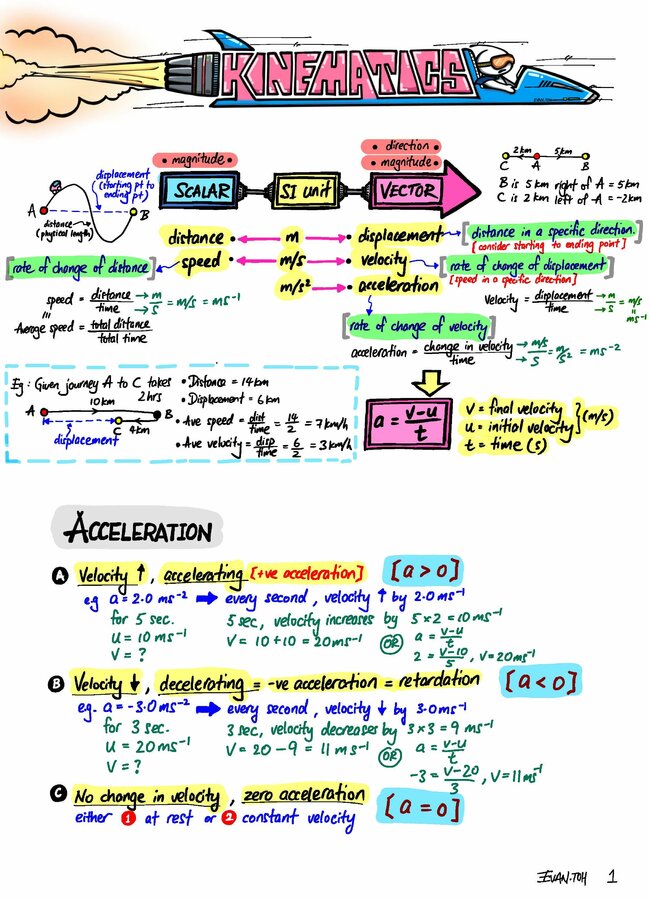 KINEMATICS
• magnitude •
• direction •
• magnitude •
SCALAR
SI UNIT
VECTOR
displacement
(starting pt to
ending pt)
A
B
distance
(physical length)
2km
5km
C
A
B
B is 5 km right of A = 5km
C is 2 km left of A = -2km
distance • m • displacement
speed • m/s • velocity
m/s² • acceleration
[distance in a specific direction.]
[consider starting to ending point]
[rate of change of distance]
[rate of change of displacement]
[speed in a specific direction]
speed = distance/time → m → s = m/s = ms⁻¹
=
Average speed = total distance/total time
Velocity = displacement/time → m → s = m/s
=
ms⁻¹
[rate of change of velocity]
acceleration = change in velocity/time → m/s → s = m/s² = ms⁻²
Eg: Given journey A to C takes
2hrs
10km
A
B
C
4km
S
displacement
• Distance = 14km
• Displacement = 6km
• Ave speed = dist/time = 14/2 = 7km/h
• Ave velocity = disp/time = 6/2 = 3km/h
a = v-u/t
V = final velocity
u = initial velocity
} (m/s)
t = time (s)
ACCELERATION
A Velocity ↑, accelerating [+ve acceleration] [a > 0]
eg a = 2.0 ms⁻² ➡ every second, velocity ↑ by 2.0ms⁻¹
for 5 sec. 5 sec, velocity increases by 5×2 = 10ms⁻¹
u = 10 ms⁻¹ V = 10+10 = 20ms⁻¹ OR a = v-u/t
V = ? 2 = v-10/5, V=20ms⁻¹
B Velocity ↓, decelerating = -ve acceleration = retardation [a < 0]
eg. a = -3.0ms⁻² ➡ every second, velocity ↓ by 3.0ms⁻¹
for 3 sec. 3 sec, velocity decreases by 3×3 = 9 ms⁻¹
u = 20ms⁻¹ V = 20 - 9 = 11 ms⁻¹ OR a = v-u/t
V = ? -3 = v-20/3, V=11ms⁻¹
C No change in velocity, zero acceleration [a = 0]
either 1 at rest or 2 constant velocity
EVAN.TOH 1